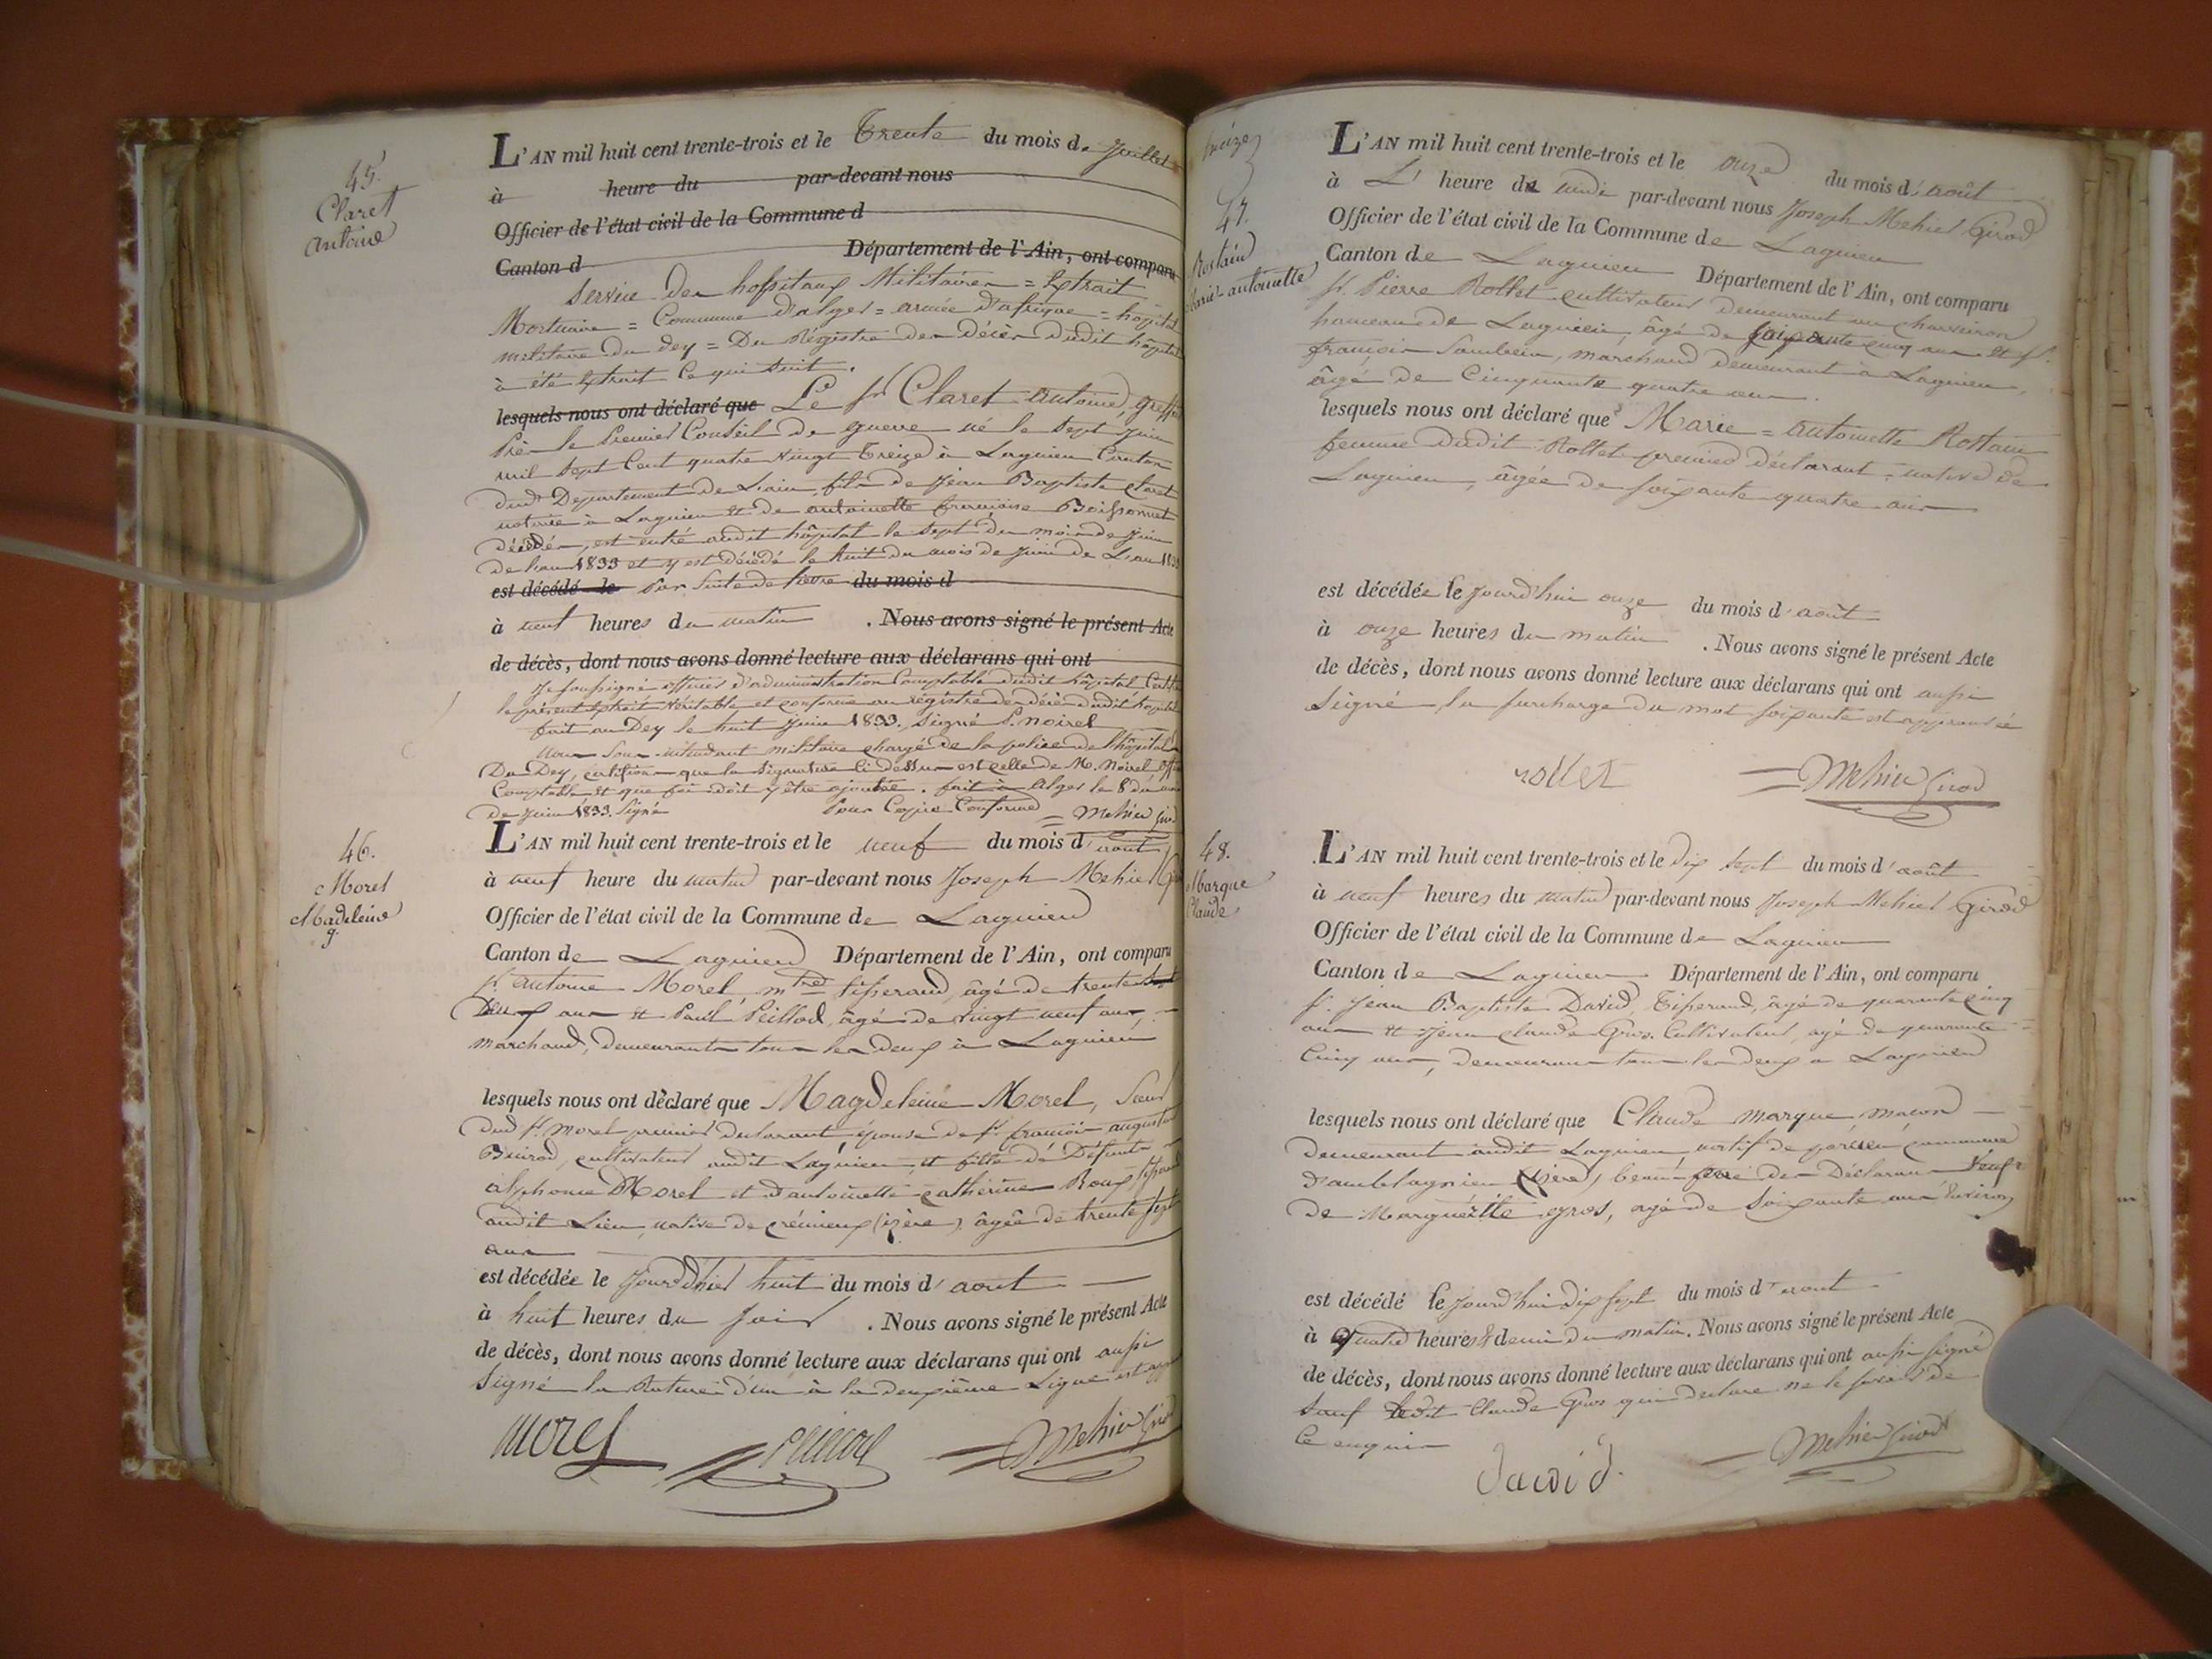 45.
Claret
antoine
L'AN mil huit cent trente-trois et le Trente du mois de Juillet
à heure du par-devant nous
Officier de l'état civil de la Commune d
Canton d Département de l'Ain, ont comparu
Service des hopitaux Militaires = Extrait
Mortuaire = Commune d'alger = armée d'afrique = hôpital
militaire du dey = Du Régistre des Décès dudit hôpital
à été Extrait ce qui suit.
lesquels nous ont déclaré que Le sr Claret antoine, greffier
Près le Premier Conseil de guerre né le sept juin
mil sept Cent quatre vingt Treize à Lagnieu Canton
dudt Département de L'ain, fils de Jean Baptiste Claret
notaire à Lagnieu et de antoinette françoise Boissonnet
décédés, est entré audit hôpital le sept du mois de Juin
de l'an 1833 et y est décédé le huit du mois de Juin de L'an 1833
est décédé le par Suite de fievre du mois d
à neuf heures du matin . Nous avons signé le présent Acte
de décès, dont nous avons donné lecture aux déclarans qui ont
Je soussigné officier d'administration Comptable dudit hôpital Certifie
le présent Extrait Véritable et conforme au régistre des décès dudit hopital
fait au Dey le huit Juin 1833. Signé S. Noirel
Nous Sous-intendant militaire chargé de la police de l'hôpital
Du Dey, certifions que la signature ci dessus est celle de M. Noirel off
Comptable et que foi doit y être ajoutée. fait à Alger le 8 du mois
de Juin 1833. Signé Pour Copie Conforme = Mehier Girod
46.
Morel
Madeleine
g.
L'AN mil huit cent trente-trois et le neuf du mois d'aout
à neuf heure du matin par-devant nous Joseph Mehier Girod
Officier de l'état civil de la Commune de Lagnieu
Canton de Lagnieu Département de l'Ain, ont comparu
sr antoine Morel mtre tisserand, âgé de trente
Deux ans et Paul Peillod, âgé de vingt neuf ans,
marchand, Demeurants tous les deux à Lagnieu
lesquels nous ont déclaré que Magdeleine Morel, Sœur
dud sr Morel premier déclarant épouse de sr françois augustin
cultivateur audit Lagnieu, et fille de Défunts
alphonse Morel et d'antoinette catherine Roux
audit Lieu, native de crémieux (izère), âgée de trente sept
ans
est décédée le Jour d'hier huit du mois d'aout
à huit heures du soir . Nous avons signé le présent Acte
de décès, dont nous avons donné lecture aux déclarans qui ont aussi
Signé la Rature d'un à la deuxième Ligne est app
Morel Peillod Mehier Girod
47.
Rostain
Marie-antoinette
L'AN mil huit cent trente-trois et le onze du mois d'août
à L' heure de midi par-devant nous Joseph Mehier Girod
Officier de l'état civil de la Commune de Lagnieu
Canton de Lagnieu Département de l'Ain, ont comparu
sr. Pierre Rollet cultivateur demeurant au
hameau de Lagnieu, âgé de soixante cinq ans et sr.
françois marchand demeurant à Lagnieu,
âgé de Cinquante quatre ans.
lesquels nous ont déclaré que Marie = antoinette Rostain
femme dudit Rollet premier déclarant, native de
Lagnieu, âgée de soixante quatre ans
est décédée le Jourd'hui onze du mois d'août
à onze heures du matin . Nous avons signé le présent Acte
de décès, dont nous avons donné lecture aux déclarans qui ont aussi
Signé la surcharge du mot soixante est approuvée
rollet Mehier Girod
48.
Marque
Claude
L'AN mil huit cent trente-trois et le dix sept du mois d'août
à neuf heures du matin par-devant nous Joseph Mehier Girod
Officier de l'état civil de la Commune de Lagnieu
Canton de Lagnieu Département de l'Ain, ont comparu
sr. Jean Baptiste David, Tisserand, âgé de quarante cinq
ans et Jean Claude Gros. Cultivateur, agé de quarante
Cinq ans, demeurans tous les deux a Lagnieu
lesquels nous ont déclaré que Claude marque macon
Demeurant audit Lagnieu, natif de commune
d'amblagnieu (izère) beau-père des Déclarans Veuf
de Marguérite gros, agé de Soixante ans Environ
est décédé le jourd'hui dix sept du mois d'aout
à quatre heures & demi du matin. Nous avons signé le présent Acte
de décès, dont nous avons donné lecture aux déclarans qui ont aussi signé
Sauf ledit Claude Gros qui declare ne le savoir de
ce enquis
David. Mehier Girod